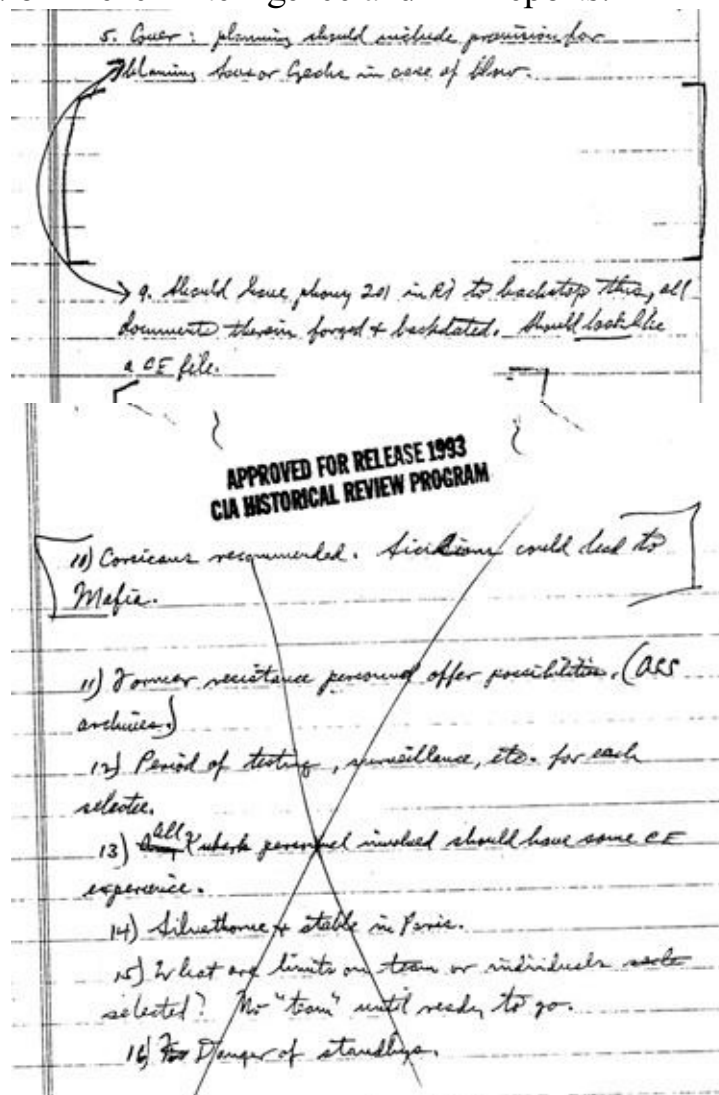 5. Cover: planning should include provision for
blaming Sovs or Czechs in case of blow.
9. Should have phony 201 in RI to backstop this, all
documents therein forged & backdated. Should look like
a CE file.
APPROVED FOR RELEASE 1993
CIA HISTORICAL REVIEW PROGRAM
10) Corsicans recommended. Sicilians could lead to
Mafia.
11) Former resistance personnel offer possibilities. (OSS
archives.)
12) Period of testing, surveillance, etc. for each
selectee.
13) all Kubark personnel involved should have some CE
experience.
14) Silverthorne & stable in Paris.
15) What are limits on team or individuals
selected? No "team" until ready to go.
16) Danger of standbys.